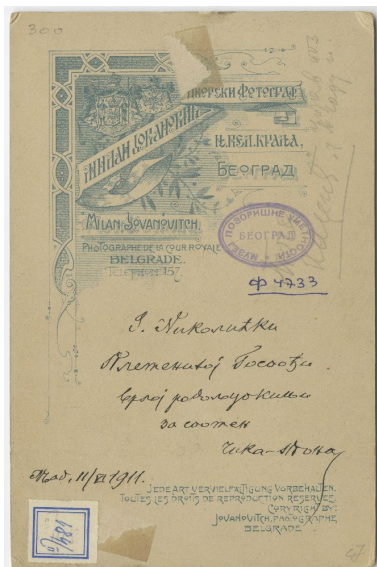 300
МИЛАН ЈОВАНОВИЋ
ДВОРСКИ ФОТОГРАФ
Њ. ВЕЛ. КРАЉА,
БЕОГРАД
MILAN JOVANOVITCH,
PHOTOGRAPHE DE LA COUR ROYALE
BELGRADE.
TELEPHON 157.
МУЗЕЈ ПОЗОРИШНЕ УМЕТНОСТИ
БЕОГРАД
Ф 4733
Ј. Николићки
Племенитој Госпођи
за спомен
Чика-
11/VI 1911.
JEDE ART VERVIELFÄLTIGUNG VORBEHALTEN.
TOUTES LES DROITS DE REPRODUCTION RESERVÉS.
COPYRIGHT BY:
JOVANOVITCH, PHOTOGRAPHE
BELGRADE